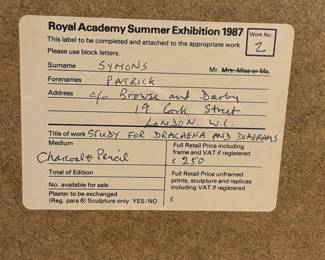 Royal Academy Summer Exhibition 1987
Work No:
2
This label to be completed and attached to the appropriate work
Please use block letters.
Surname SYMONS Mr. Mrs. Miss or Ms.
Forenames PATRICK
Address c/o Browse and Darby
19 Cork Street
LONDON. W.C.
Title of work STUDY FOR DRACAENA AND DIAGRAMS
Medium
Charcoal & Pencil
Full Retail Price including
frame and VAT if registered
£ 250
Total of Edition
No. available for sale
Full Retail Price unframed
prints, sculpture and replicas
including VAT if registered
Plaster to be exchanged
(Reg. para 6) Sculpture only YES/NO
£